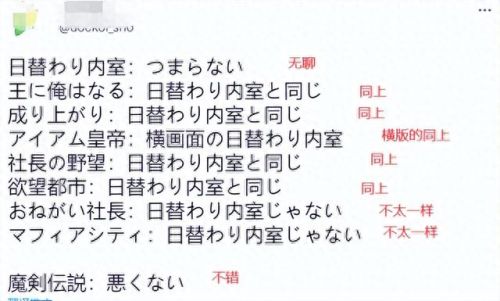 日替わり内室：つまらない 无聊
王に俺はなる：日替わり内室と同じ 同上
成り上がり：日替わり内室と同じ 同上
アイアム皇帝：横画面の日替わり内室 横版的同上
社長の野望：日替わり内室と同じ 同上
欲望都市：日替わり内室と同じ 同上
おねがい社長：日替わり内室じゃない 不太一样
マフィアシティ：日替わり内室じゃない 不太一样
魔剣伝説：悪くない 不错